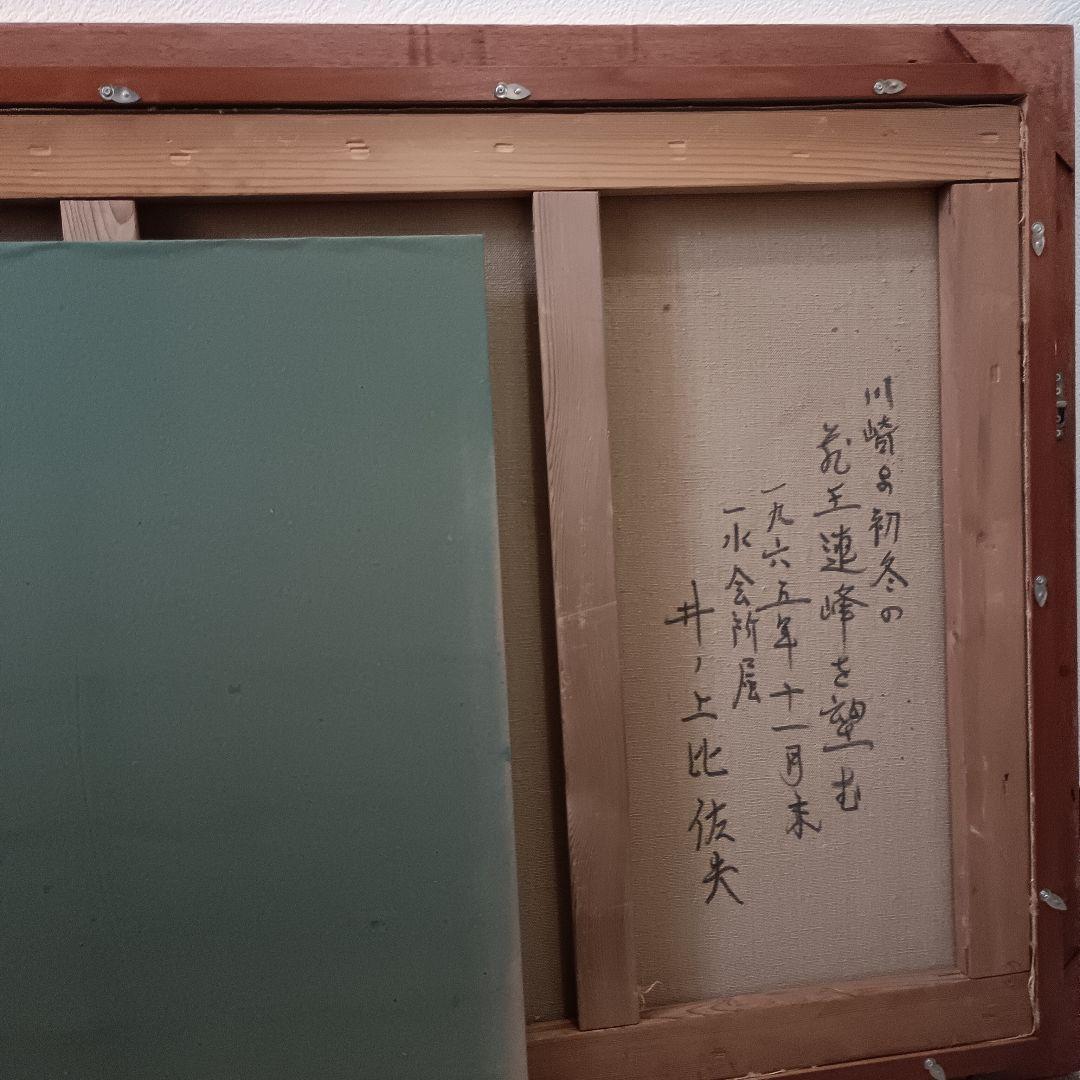 川崎ゟ初冬の
蔵王連峰を望む
一九六五年十一月末
一水会所属
井ノ上比佐夫